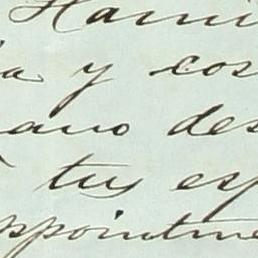 Hami
a y cos
ano des
tus esp
ppointme